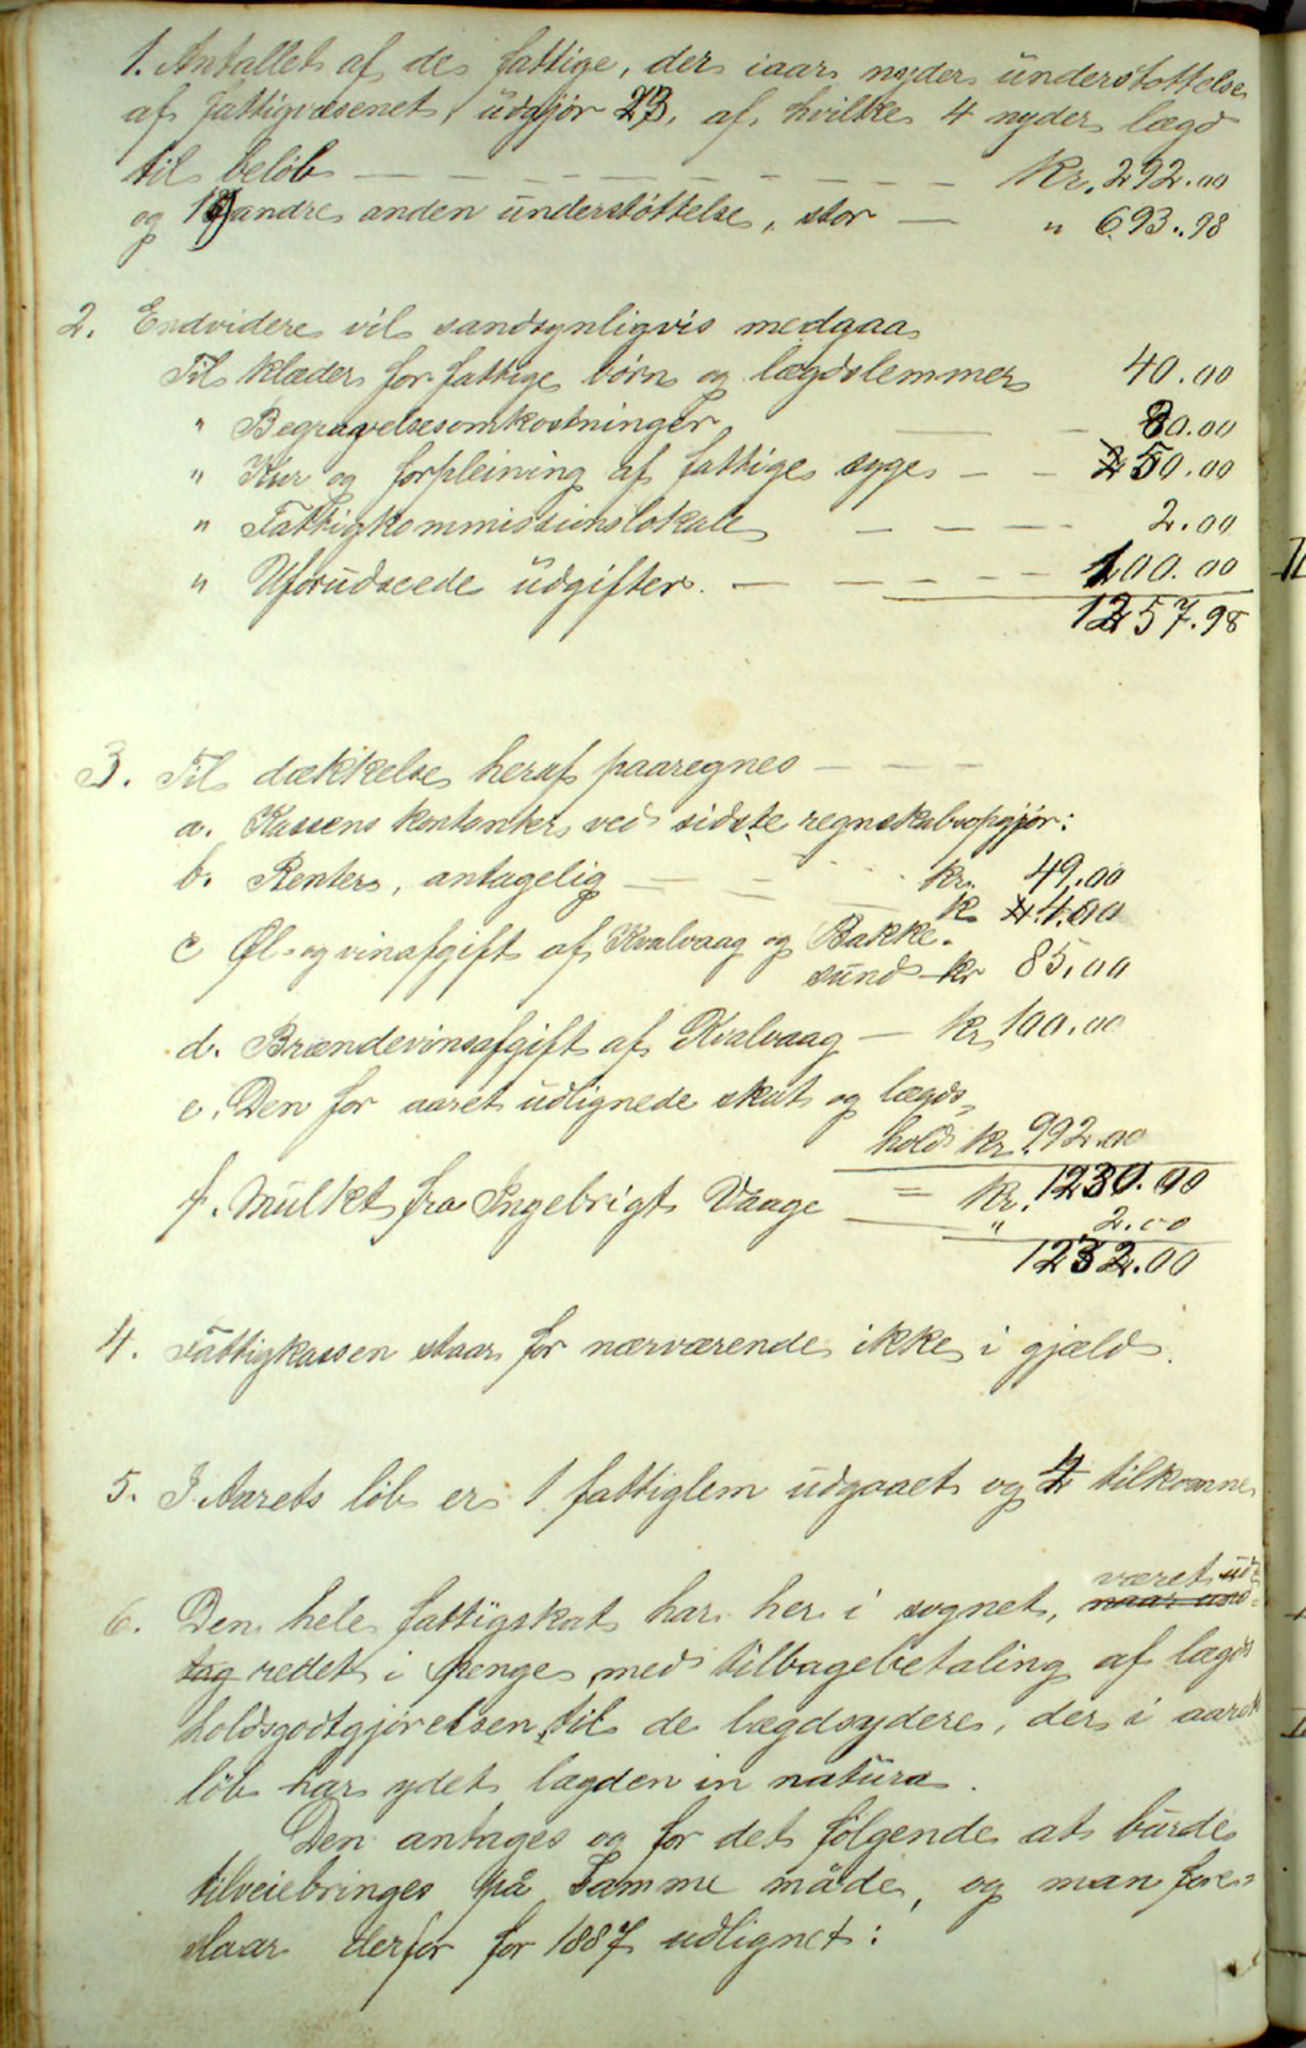 1. Antallet af de fattige, der iaar nyder understøttelse
af fattigvæsenet, udgjør 23, af hvilke 4 nyder lægd
til beløb — — — — — — — — — — — Kr. 292.00
og 19 andre anden understøttelse, stor — " 693.98
2. Endvidere vil sandsynligvis medgaa
Til klæder for fattige børn og lægdslemmer 40.00
" Begravelsesomkostninger — — 80.00
" Kur og forpleining af fattige syge — — 50.00
" Fattigkommissionslokale — — — — 2.00
" Uforudseede udgifter. — — — — — 100.00
1257.98
3. Til dækkelse heraf paaregnes — — —
a. Kassens kontanter ved sidste regnskabsopgjør:
kr. 49.00
b. Renter, antagelig — — — k 4.00
c Øl- og vinafgift af Kvalvaag og Bakke-
sund kr 85.00
d. Brændevinsafgift af Kvalvaag — kr 100.00
e. Den for aaret udlignede skat og lægds-
hold kr. 992.00
= kr. 1230.00
f. Mulkt fra Ingebrigt Vaage — " 2.00
1232.00
4. Fattigkassen staar for nærværende ikke i gjæld.
5. I Aarets løb er 1 fattiglem udgaaet og 4 tilkomne
været ud-
6. Den hele fattigskat har her i sognet, naar und-
tag redet i penge med tilbagebetaling af lægds
holdsgodtgjørelsen til de lægdsydere, der i aarets
løb har ydet lægden in natura.
Den antages og for det følgende at burde
tilveiebringes på samme måde, og man fore-
slaar derfor for 1887 udlignet: